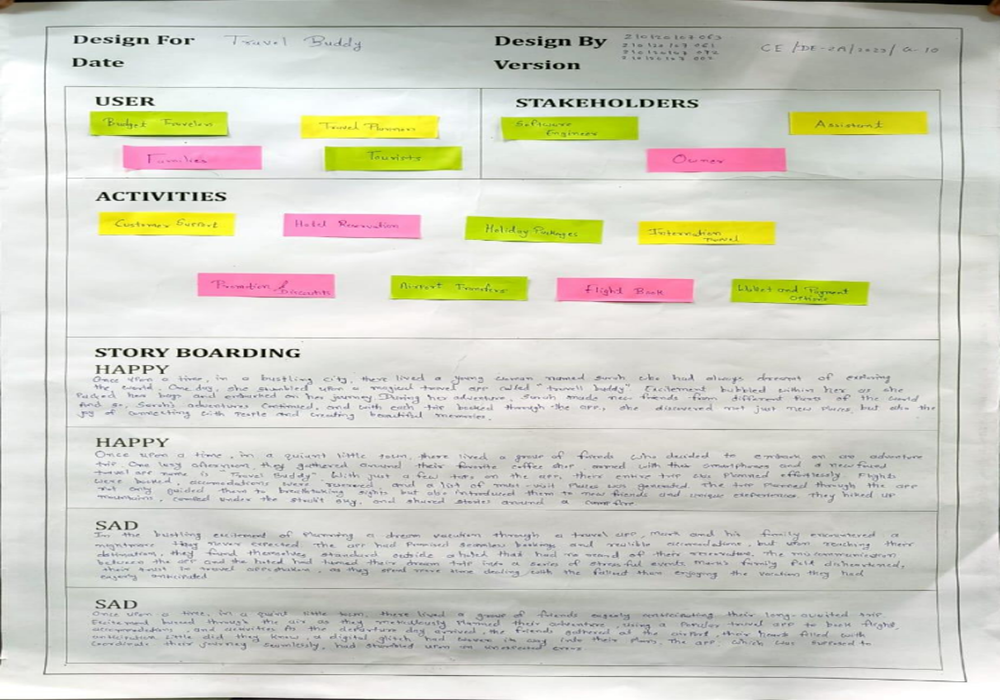 Design For Travel Buddy
Design By 210120107063
CE/DE-2A/2023/G-10
Date
Version
USER
Budget Travelers
Travel Planners
Families
Tourists
STAKEHOLDERS
Software
Engineer
Assistant
Owner
ACTIVITIES
Customer Support
Hotel Reservation
Holiday Packages
Internation
travel
Promotion &
Discounts
Airport Transfers
Flight Book
Wallet and Payment
Options
STORY BOARDING
HAPPY
Once upon a time, in a bustling city, there lived a young woman named Sarah who had always dreamt of exploring
the world. One day, she stumbled upon a magical travel app called "travel buddy" Excitement bubbled within her as she
Packed her bags and embarked on her journey During her adventure, Sarah made new friends from different of the world
And so, Sarah's adventures continued, and with each trip booked through the app, she discovered not just new places, but also the
joy of connecting with people and creating beautiful memories.
HAPPY
Once upon a time, in a quiant little town, there lived a group of friends who decided to embark on an adventure
trip. One lazy afternoon, they gathered around their favorite coffee shop armed with their smartphones and a new found
travel app name is "Travel Buddy" With just a few taps on the app, there entire trip was planned effortlessly Flights
were booked, accomodations were reserved, and a list of must-visit Places was generated The trip Planned through the app
not only guided them to breathtaking sights but also introduced them to new friends and unique experience, they hiked up
mountain, camped under the starlit sky, and shared stories around a campfire.
SAD
In the bustling excitment of Planning a dream vacation through a travel app, Mark and his family encountered a
nightmare they never expected. The app had Promised seamless bookings and accomodations, but upon reaching their
destination, they found themselves outside a hotel that had no record of their reservation. The miscommunication
between the app and the hotel had turned their dream trip into a series of stressful events Mark's family felt disheartened,
their trust in travel app, as they spend more time dealing with the fallout than enjoying the vacation they had
eagerly anticipated
SAD
Once upon a time, in a quint little town, there lived a group of friends eagerly anticipating their long-awaited trip.
Excitement buzzed through the air as they meticulously Planned their adventure, using a Popular travel app to book flight,
accomodations, and activities As the departure day arrived, the friends gathered at the airport, their hearts filled with
anticipation Little did they know, a digital glitch had its way into their Plans, the app, which was supposed to
coordinate their journey seamlessly, had stumbled upon an unexpected error.